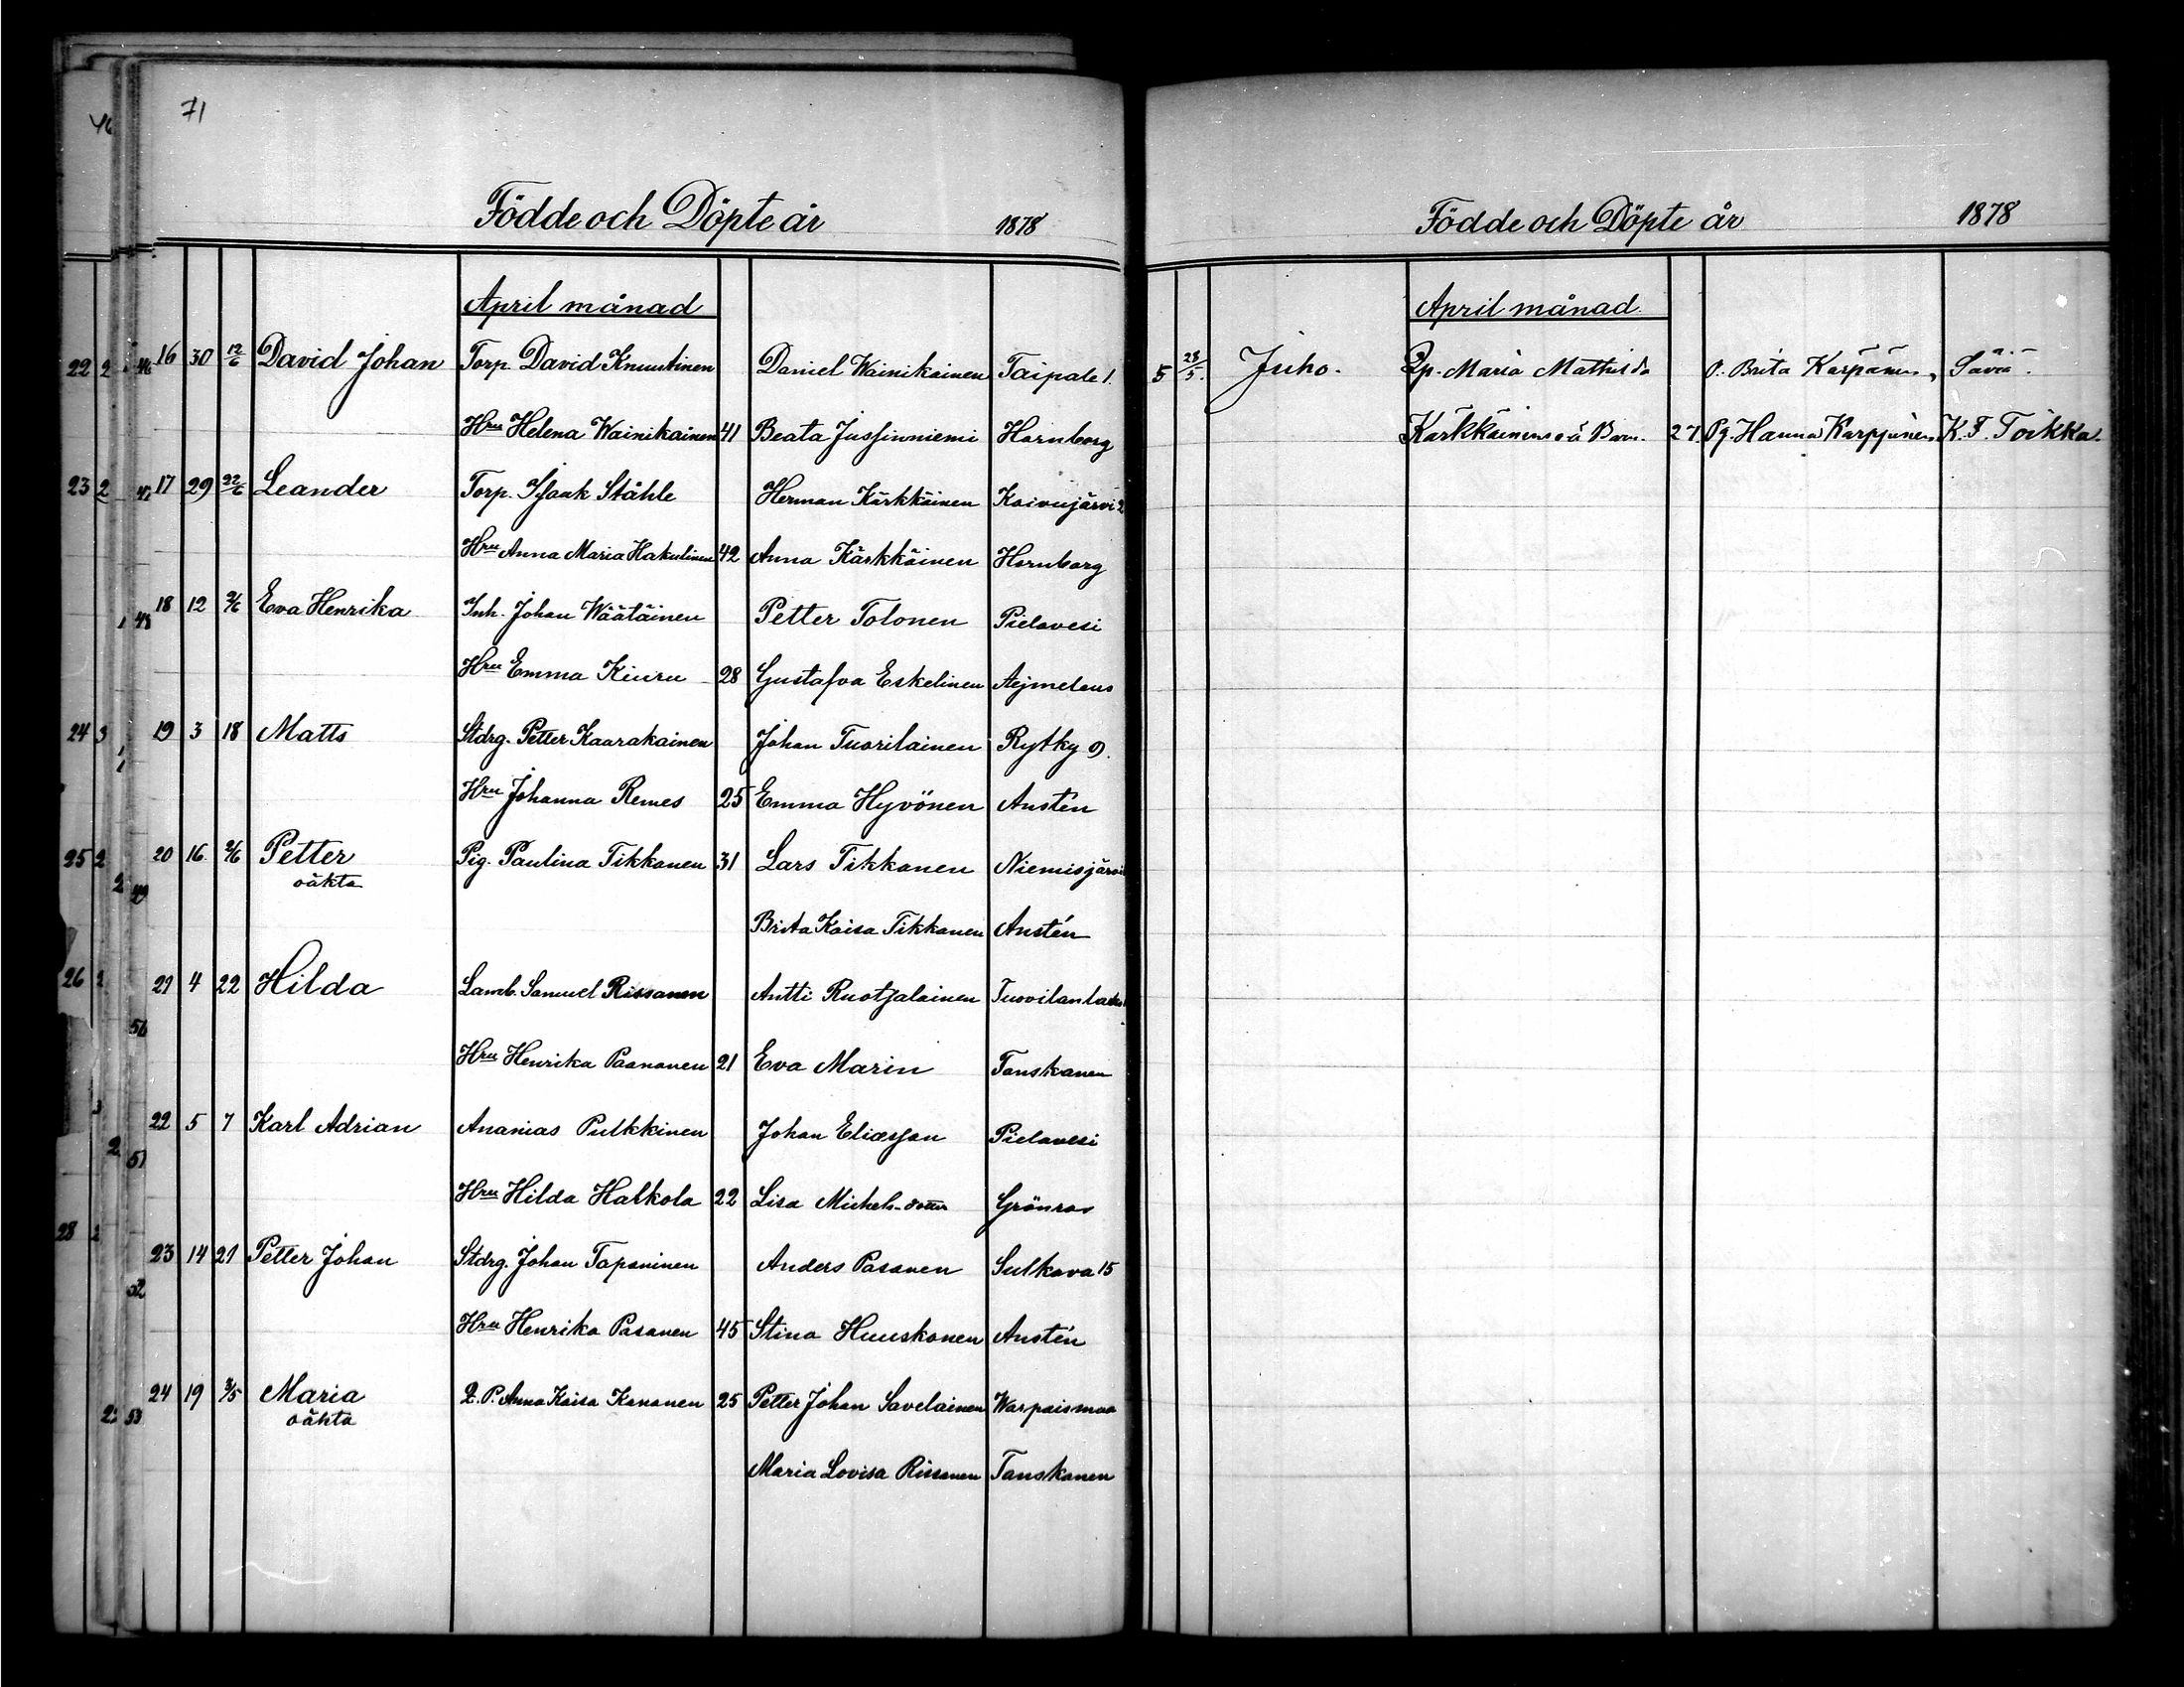 71
Födde och Döpte år 1878
April månad
16 30 12/6 David Johan Torp. David Knuutinen Daniel Wainikainen Taipale 1.
Hru Helena Wainikainen 41 Beata Jussinniemi Hornborg
17 29 22/6 Leander Torp. Isaak Ståhle Herman Kärkkäinen Koivujärvi 2
Hru Anna Maria Hakulinen 42 Anna Kärkkäinen Hornborg
18 12 2/6 Eva Henrika Inh. Johan Wäätäinen Petter Tolonen Pielavesi
Hru Emma Kiuru 28 Gustafva Eskelinen Aejmelaus
19 3 18 Matts Stdrg. Petter Kaarakainen Johan Tuorilainen Rytky 9.
Hru Johanna Remes 25 Emma Hyvönen Austén
20 16 2/6 Petter Pig. Paulina Tikkanen 31 Lars Tikkanen Niemisjärvi
oäkta
Brita Kaisa Tikkanen Austén
21 4 22 Hilda Lamb. Samuel Rissanen Antti Ruotsalainen
Hru Henrika Paananen 21 Eva Marin Tanskanen
22 5 7 Karl Adrian Ananias Pulkkinen Johan Eliasson Pielavesi
Hru Hilda Halkola 22 Lisa Michels-dotter Grönroos
23 14 21 Petter Johan Stdrg. Johan Tapaninen Anders Pasanen Sulkava 15
Hru Henrika Pasanen 45 Stina Huuskonen Austén
24 19 3/5 Maria Q. P. Anna Kaisa Kananen 25 Petter Johan Savelainen Warpaismaa
oäkta
Maria Lovisa Rissanen Tanskanen
Födde och Döpte år 1878
April månad
5 28/5. Juho. Qp. Maria Mathilda P. Brita Karpänen, Säviä.
Kärkkäinens oä Barn. 27. Pg. Hanna Karppinen K. F. Toikka.